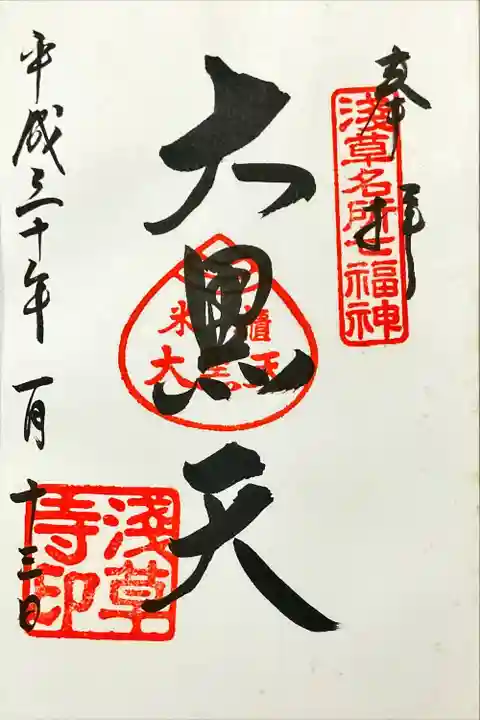 奉拝
淺草名所七福神
大黒天
米櫃
大黒天
平成三十年一月十三日
淺草
寺印